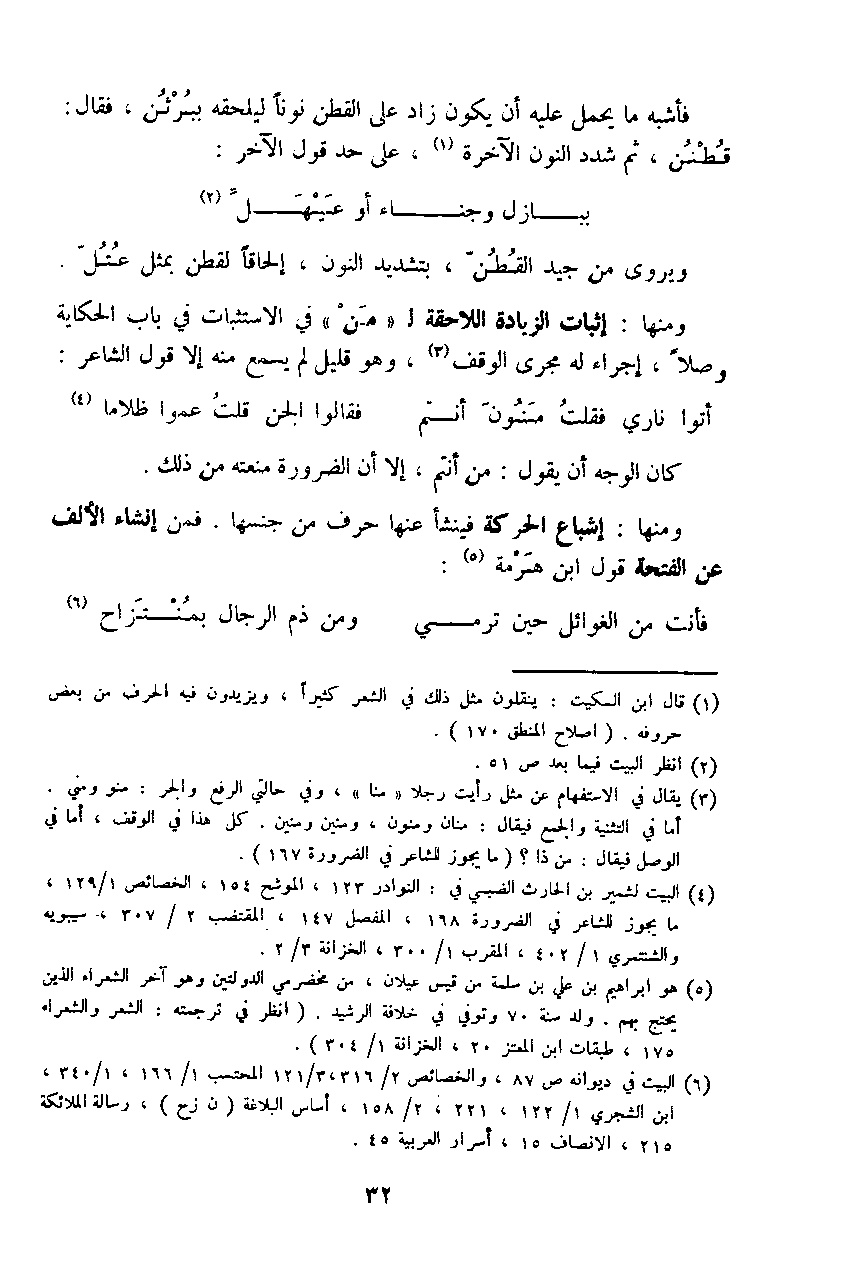 فأشبه ما يحمل عليه أن يكون زاد على القطن نوناً ليلحقه ببُرْثُن ، فقال :
قُطْنُن ، ثم شدد النون الآخرة (١) ، على حد قول الآخر :
ببـــازل وجنـــاء أو عَيْهَـــلّ (٢)
ويروى من جيد القُطُنّ ، بتشديد النون ، إلحاقاً لقطن بمثل عُتُلّ .
ومنها : إثبات الزيادة اللاحقة لـ « مَنْ » في الاستثبات في باب الحكاية
وصلاً ، إجراء له مجرى الوقف (٣) ، وهو قليل لم يسمع منه إلا قول الشاعر :
أتوا ناري فقلتُ مَنُونَ أنتم فقالوا الجن قلتُ عموا ظلاما (٤)
كان الوجه أن يقول : من أنتم ، إلا أن الضرورة منعته من ذلك .
ومنها : إشباع الحركة فينشأ عنها حرف من جنسها . فمن إنشاء الألف
عن الفتحة قول ابن هَرْمة (٥) :
فأنت من الغوائل حين ترمـــي ومن ذم الرجال بمُنْتَزاح (٦)
(١) قال ابن السكيت : ينقلون مثل ذلك في الشعر كثيراً ، ويزيدون فيه الحرف من بعض
حروفه . ( اصلاح المنطق ١٧٠ ) .
(٢) انظر البيت فيما بعد ص ٥١ .
(٣) يقال في الاستفهام عن مثل رأيت رجلا « منا » ، وفي حالتي الرفع والجر : منو ومني .
أما في التثنية والجمع فيقال : منان ومنون ، ومنين ومنين . كل هذا في الوقف ، أما في
الوصل فيقال : من ذا ؟ ( ما يجوز للشاعر في الضرورة ١٦٧ ) .
(٤) البيت لشمير بن الحارث الضبي في : النوادر ١٢٣ ، الموشح ١٥٤ ، الخصائص ١٢٩/١ ،
ما يجوز للشاعر في الضرورة ١٦٨ ، المفصل ١٤٧ ، المقتضب ٢ / ٣٠٧ ، سيبويه
والشنتمري ١ / ٤٠٢ ، المقرب ١ / ٣٠٠ ، الخزانة ٣ / ٢ .
(٥) هو ابراهيم بن علي بن سلمة من قيس عيلان ، من مخضرمي الدولتين وهو آخر الشعراء الذين
يحتج بهم . ولد سنة ٧٠ وتوفي في خلافة الرشيد . ( انظر في ترجمته : الشعر والشعراء
١٧٥ ، طبقات ابن المعتز ٢٠ ، الخزانة ١ / ٣٠٤ ) .
(٦) البيت في ديوانه ص ٨٧ ، والخصائص ٢ / ٣١٦ ، ٣ / ١٢١ المحتسب ١ / ١٦٦ ، ١ / ٣٤٠ ،
ابن الشجري ١ / ١٢٢ ، ٢٢١ ، ٢ / ١٥٨ ، أساس البلاغة ( ن زح ) ، رسالة الملائكة
٢١٥ ، الانصاف ١٥ ، أسرار العربية ٤٥ .
٣٢